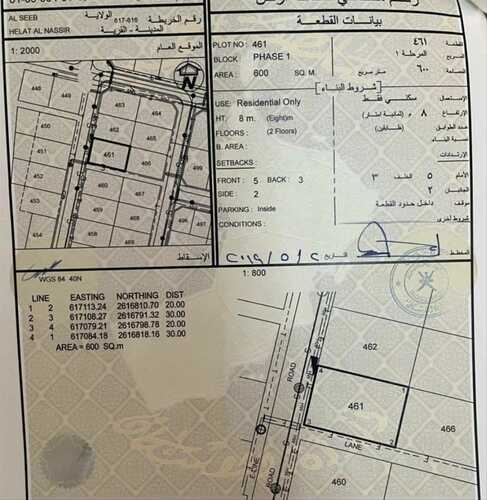 AL SEEB
الولاية
617-616
رقم الخريطة
المدينة - القرية
HELAT AL NASSIR
1: 2000
الموقع العام
449
448
464
463
465
462
450
461
466
499
451
460
452
459
498
453
458
497
454
N
بيانات القطعة
PLOT NO : 461
٤٦١
القطعة
BLOCK : PHASE 1
المرحلة ١
المربع
AREA : 600 SQ. M
٦٠٠ متر مربع
المساحة
شروط البناء
USE: Residential Only
سكني فقط
الإستعمال
HT. 8 m. (Eight)m
٨ م (ثمانية امتار)
الإرتفاع
FLOORS : (2 Floors)
(طابقين)
عدد الطوابق
B. AREA :
نسبة البناء
SETBACKS :
الإرتدادات
FRONT : 5 BACK : 3
٥ الخلف ٣
الأمام
SIDE : 2
٢
الجانبان
PARKING : Inside
داخل حدود القطعة
موقف
CONDITIONS :
شروط أخرى
المخطط
التاريخ
٢٠١٩/٥/٢
الإسقاط
WGS 84 40N
1: 800
LINE EASTING NORTHING DIST
1 2 617113.24 2616810.70 20.00
2 3 617108.27 2616791.32 30.00
3 4 617079.21 2616798.78 20.00
4 1 617084.18 2616818.16 30.00
AREA = 600 SQ.m
462
ROAD
4
1
461
3
2
LANE
ROAD
460